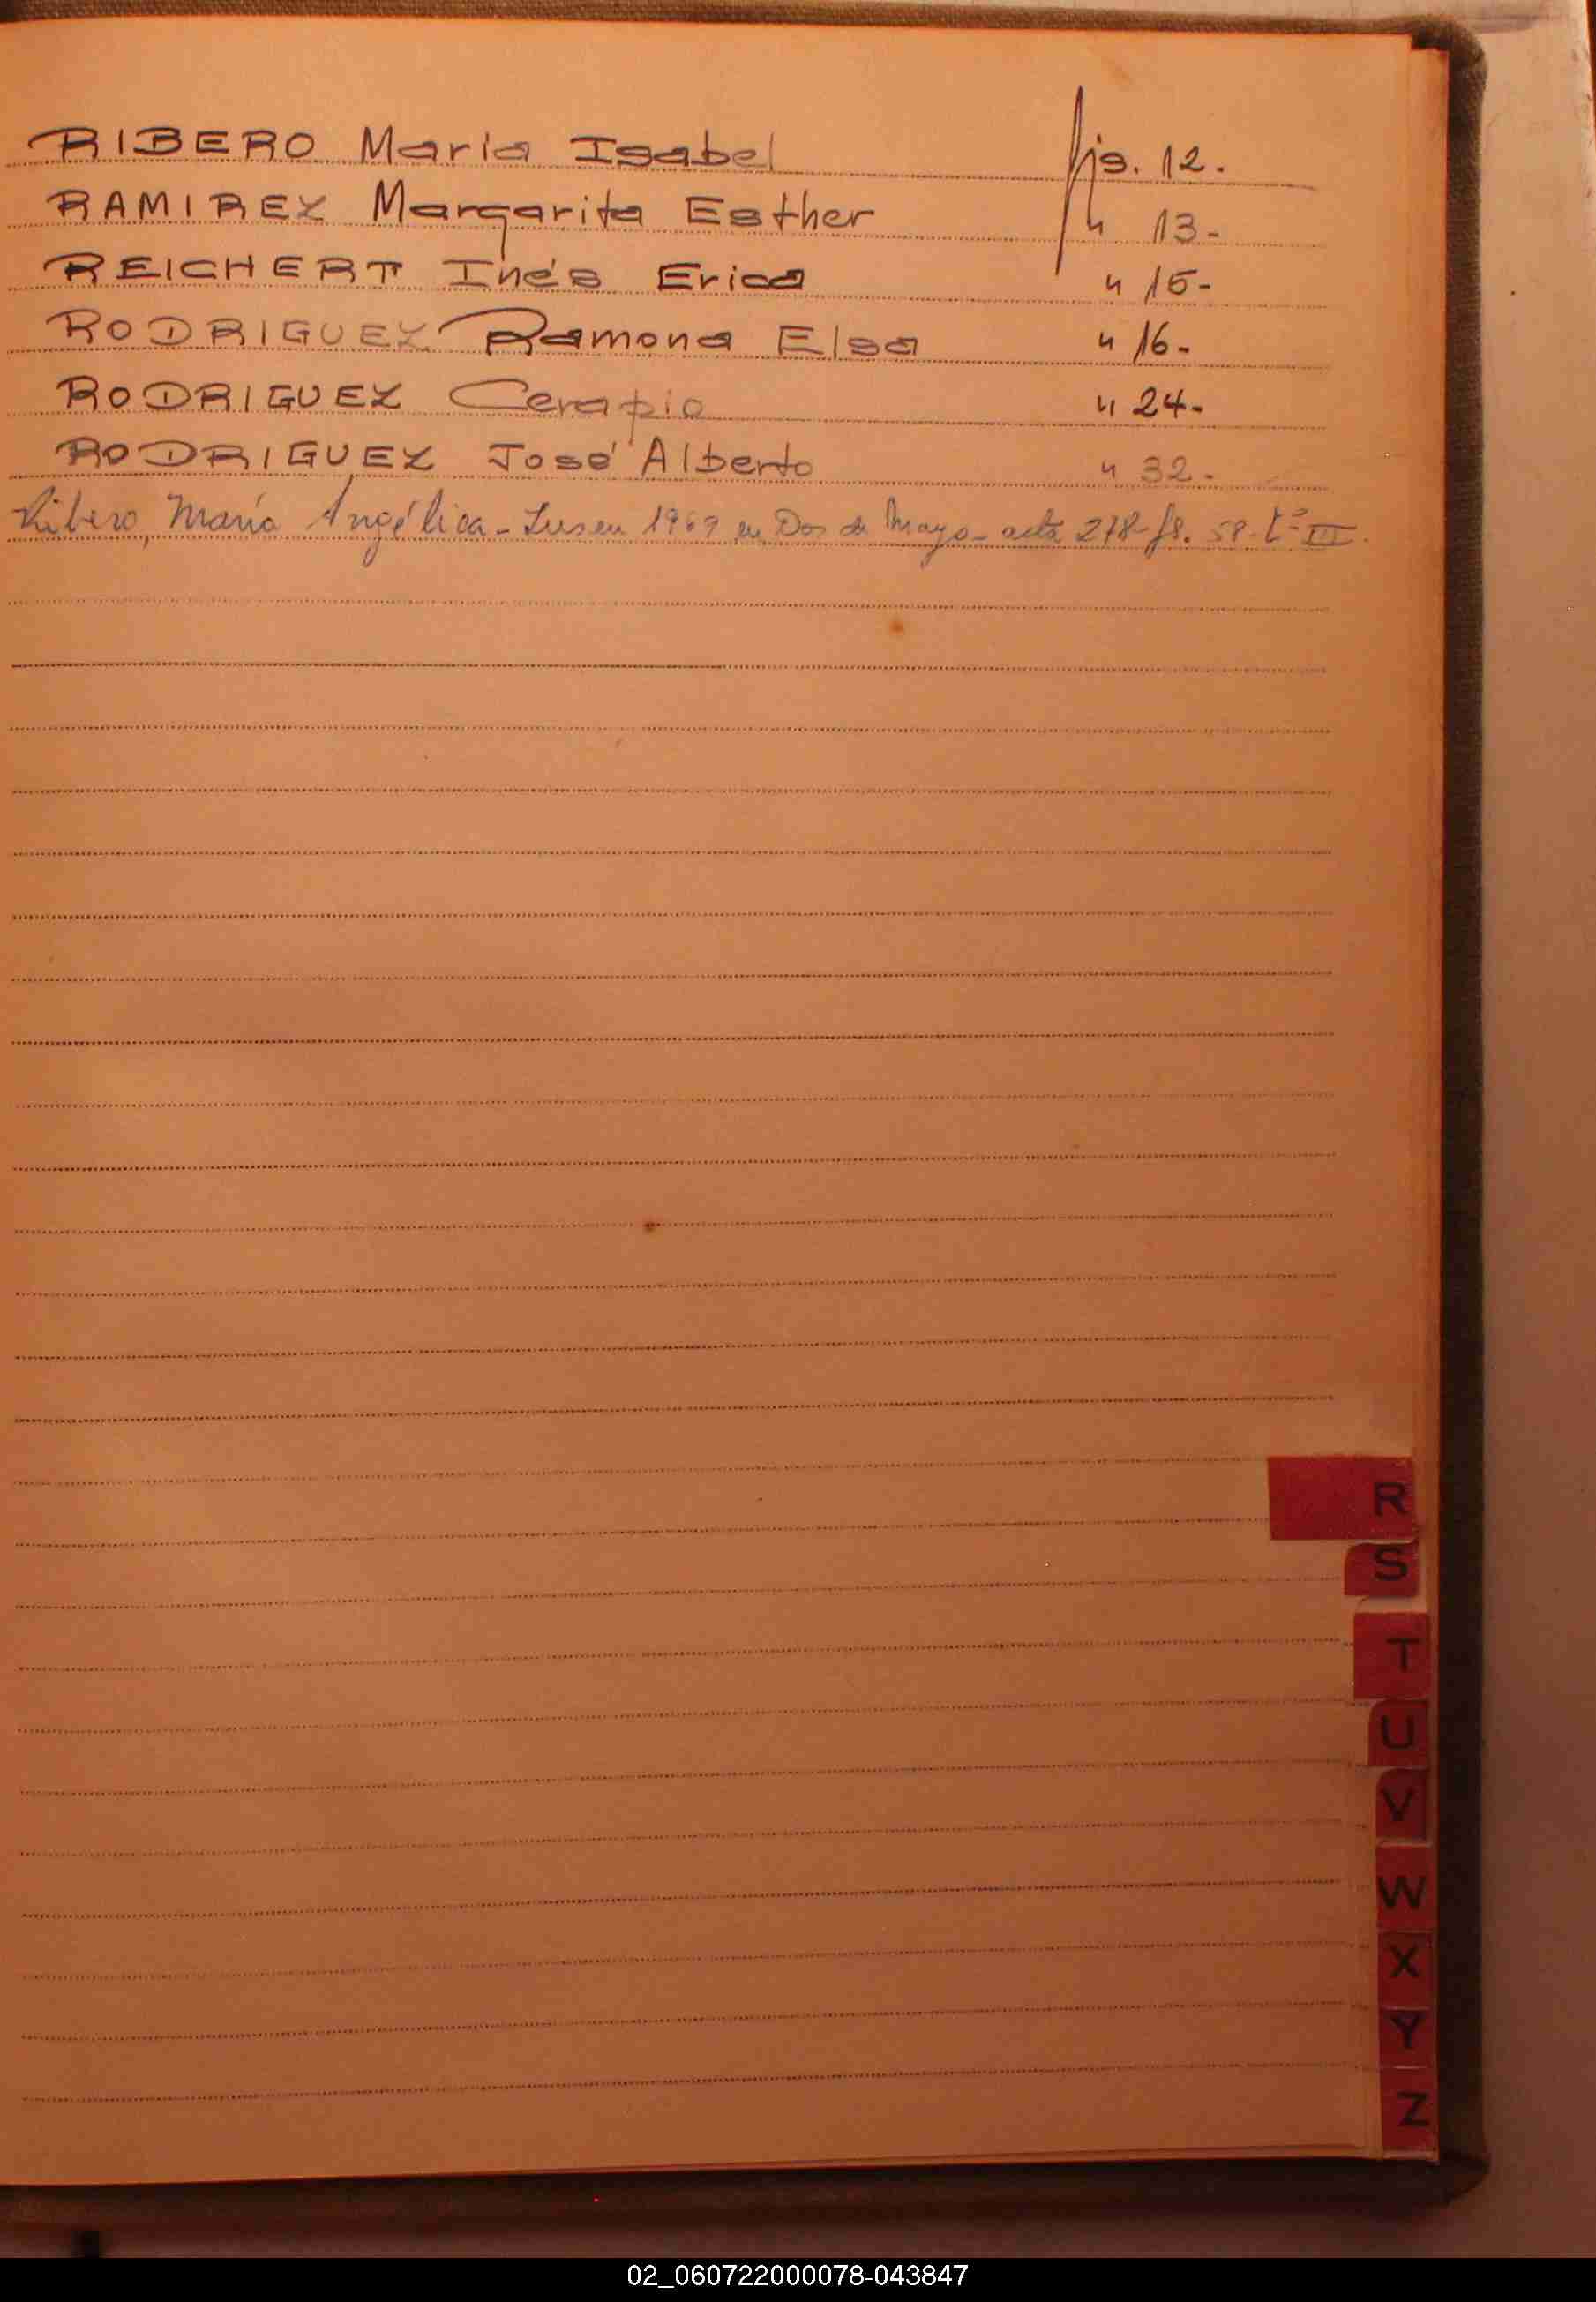 RIBERO Maria Isabel fjs. 12.
RAMIREZ Margarita Esther " 13-
REICHERT Inés Erica " 15-
RODRIGUEZ Ramona Elsa " 16-
RODRIGUEZ Cerapio " 24-
RODRIGUEZ José Alberto " 32-
Ribero, María Angélica - en 1969 en Dos de Mayo - acta 278- fs. 58- tº III.
R
S
T
U
V
W
X
Y
Z
02_060722000078-043847